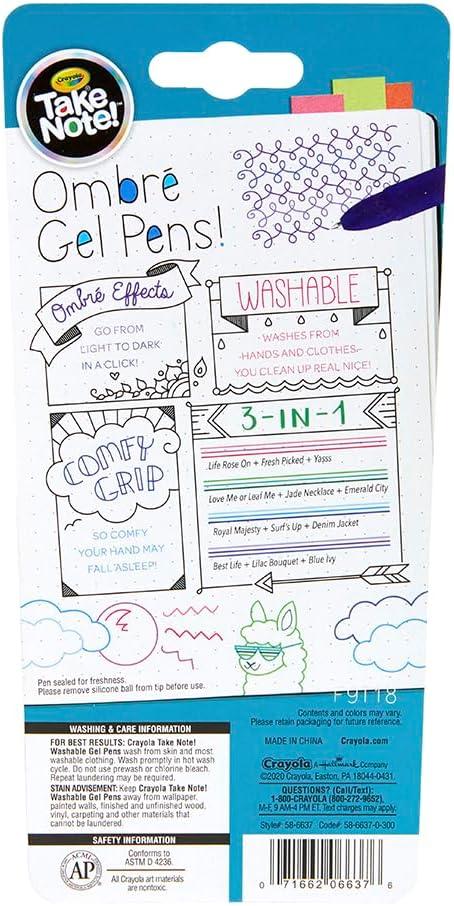 Crayola
Take
Note!
Ombré
Gel Pens!
Ombré Effects
GO FROM
LIGHT TO DARK
IN A CLICK!
WASHABLE
WASHES FROM
HANDS AND CLOTHES.
YOU CLEAN UP REAL NICE!
COMFY
GRIP
SO COMFY
YOUR HAND MAY
FALL ASLEEP!
3-IN-1
Life Rose On + Fresh Picked + Yasss
Love Me or Leaf Me + Jade Necklace + Emerald City
Royal Majesty + Surf's Up + Denim Jacket
Best Life + Lilac Bouquet + Blue Ivy
Pen sealed for freshness.
Please remove silicone ball from tip before use.
F9118
Contents and colors may vary.
Please retain packaging for future reference.
WASHING & CARE INFORMATION
FOR BEST RESULTS: Crayola Take Note!
Washable Gel Pens wash from skin and most
washable clothing. Wash promptly in hot wash
cycle. Do not use prewash or chlorine bleach.
Repeat laundering may be required.
STAIN ADVISEMENT: Keep Crayola Take Note!
Washable Gel Pens away from wallpaper,
painted walls, finished and unfinished wood,
vinyl, carpeting and other materials that
cannot be laundered.
SAFETY INFORMATION
ACMI
AP
Conforms to
ASTM D 4236.
All Crayola art materials
are nontoxic.
MADE IN CHINA Crayola.com
Crayola A Hallmark Company
©2020 Crayola, Easton, PA 18044-0431.
QUESTIONS? (Call/Text):
1-800-CRAYOLA (800-272-9652),
M-F, 9 AM-4 PM ET. Text charges may apply.
Style#: 58-6637 Code#: 58-6637-0-300
0 71662 06637 6